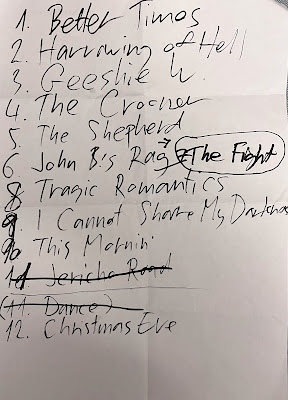 1. Better Times
2. Harrowing of Hell
3. Geeshie W.
4. The Crooner
5. The Shepherd
6 John B's Rag → The Fight
8 Tragic Romantics
9 I Cannot Share My Darkness
10 This Mornin'
11 Jericho Road
(11. Dance)
12. Christmas Eve